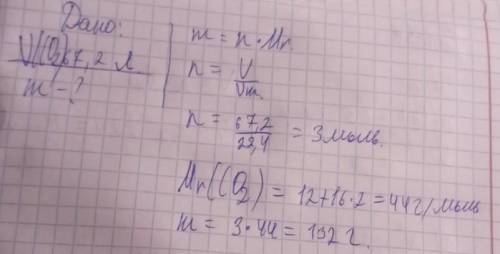 Дано:
V(CO₂) 67,2 л
m - ?
m = n · Mr
n = V/Vm.
n = 67,2/22,4 = 3 моль.
Mr(CO₂) = 12+16·2 = 44 г/моль
m = 3·44 = 132 г.